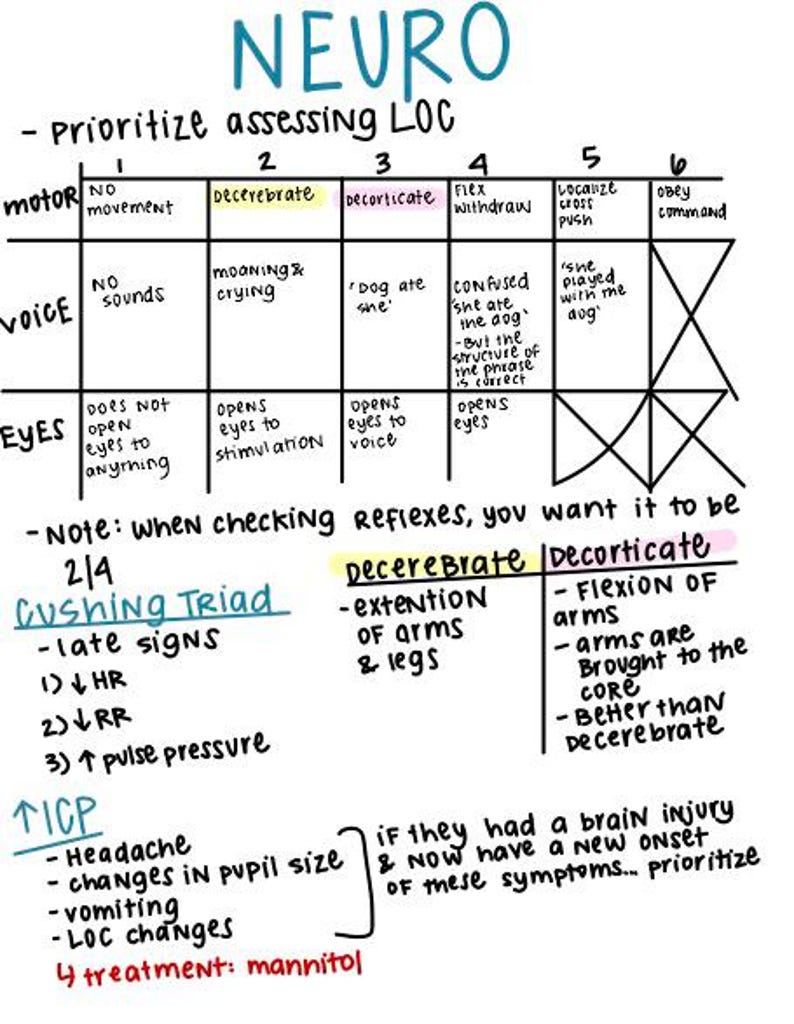 NEURO
- Prioritize assessing LOC
1 2 3 4 5 6
MOTOR
NO
movement
Decerebrate
Decorticate
Flex
withdraw
Localize
cross
push
obey
command
VOICE
NO
sounds
moaning &
crying
'Dog ate
she'
confused
'she ate
the dog'
-But the
structure of
the phrase
is correct
'she
played
with me
dog'
EYES
DOES NOT
open
eyes to
anything
opens
eyes to
stimulation
opens
eyes to
voice
opens
eyes
- Note: when checking reflexes, you want it to be
2/4
Cushing Triad
- late signs
1) ↓ HR
2) ↓ RR
3) ↑ pulse pressure
Decerebrate
- extention
of arms
& legs
Decorticate
- Flexion of
arms
- arms are
Brought to the
core
- Better than
Decerebrate
↑ICP
- Headache
- changes in pupil size
- vomiting
- LOC changes
if they had a brain injury
& now have a new onset
of these symptoms... prioritize
↳ treatment: mannitol